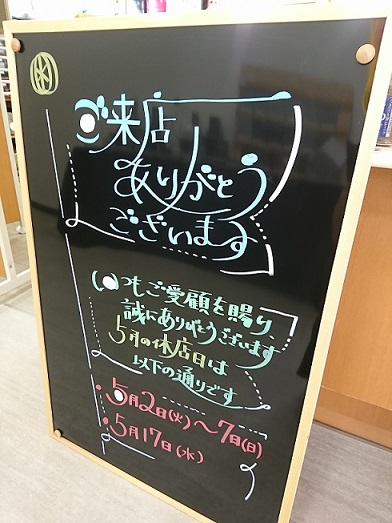 ご来店
ありがとう
ございます
いつもご愛顧を賜り、
誠にありがとうございます
5月の休店日は
以下の通りです
•5月2日(火)〜7日(日)
•5月17日(水)